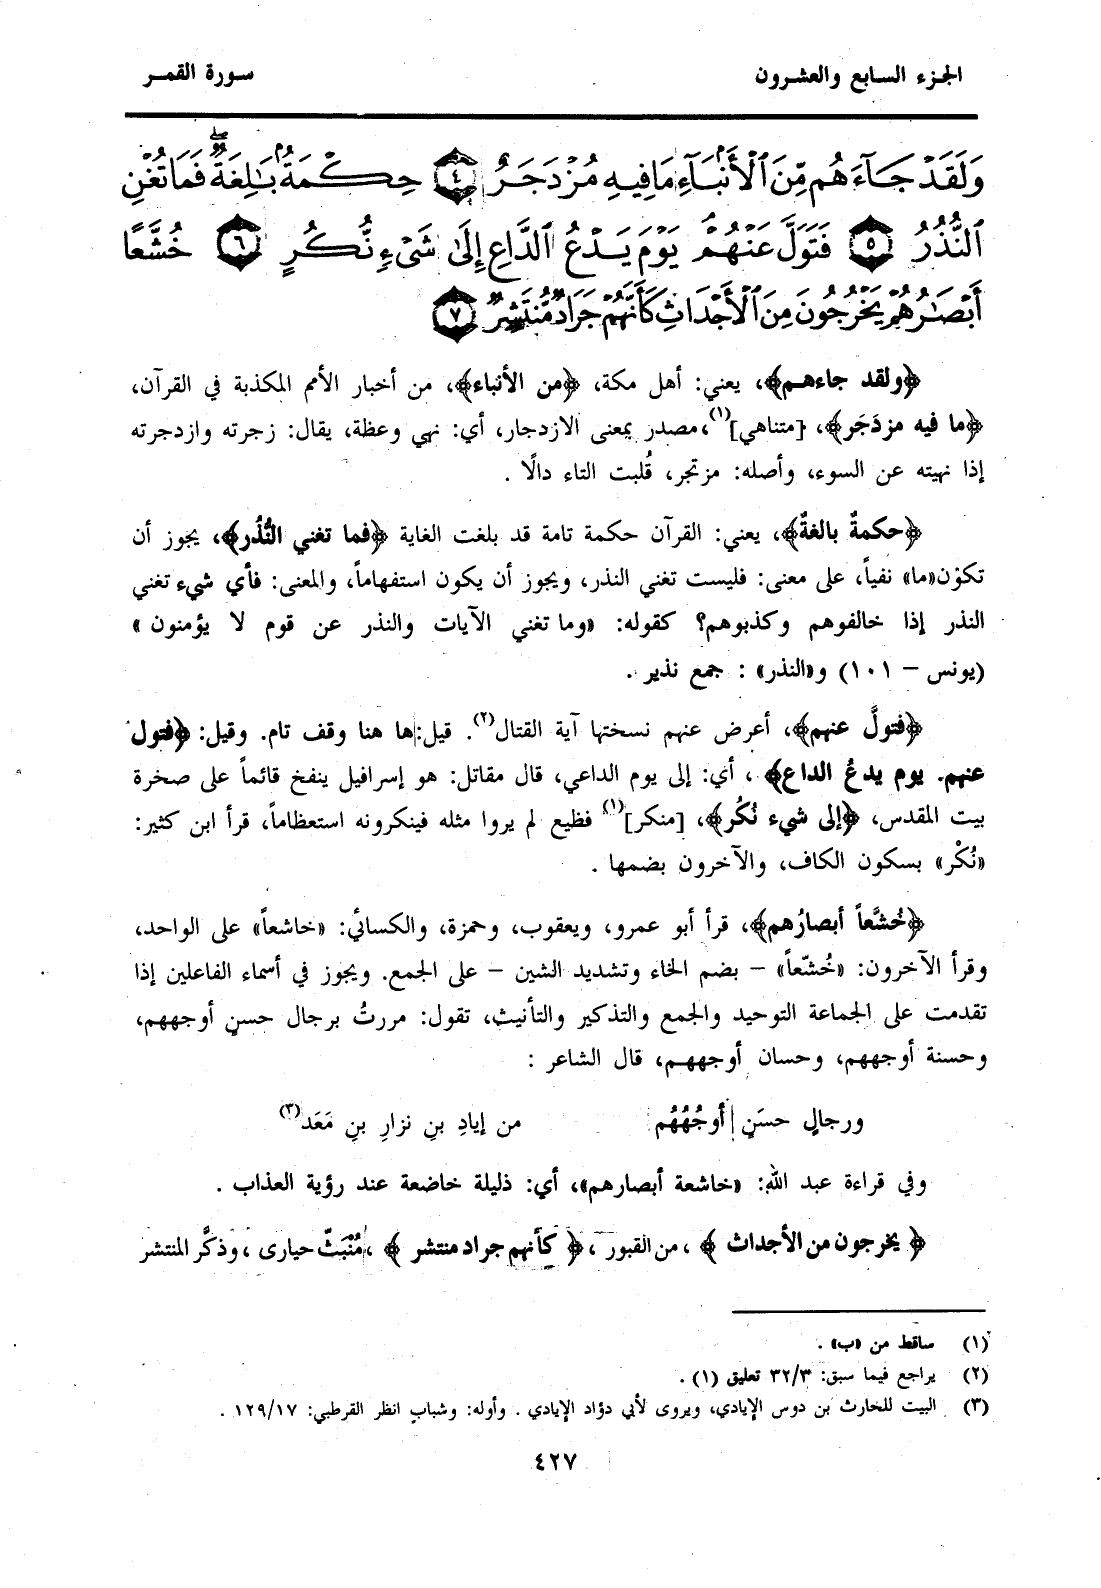 الجزء السابع والعشرون
سورة القمر
وَلَقَدْ جَآءَهُم مِّنَ ٱلْأَنۢبَآءِ مَا فِيهِ مُزْدَجَرٌ ٤ حِكْمَةٌۢ بَـٰلِغَةٌۖ فَمَا تُغْنِ
ٱلنُّذُرُ ٥ فَتَوَلَّ عَنْهُمْۘ يَوْمَ يَدْعُ ٱلدَّاعِ إِلَىٰ شَىْءٍ نُّكُرٍ ٦ خُشَّعًا
أَبْصَـٰرُهُمْ يَخْرُجُونَ مِنَ ٱلْأَجْدَاثِ كَأَنَّهُمْ جَرَادٌ مُّنتَشِرٌ ٧
﴿ولقد جاءهم﴾، يعني: أهل مكة، ﴿من الأنباء﴾، من أخبار الأمم المكذبة في القرآن،
﴿ما فيه مزدَجَر﴾، [متناهي](١)،مصدر بمعنى الازدجار، أي: نهي وعظة، يقال: زجرته وازدجرته
إذا نهيته عن السوء، وأصله: مزتجر، قُلبت التاء دالًا .
﴿حكمةٌ بالغةٌ﴾، يعني: القرآن حكمة تامة قد بلغت الغاية ﴿فما تغني النُّذُر﴾، يجوز أن
تكون«ما» نفياً، على معنى: فليست تغني النذر، ويجوز أن يكون استفهاماً، والمعنى: فأي شيء تغني
النذر إذا خالفوهم وكذبوهم؟ كقوله: «وما تغني الآيات والنذر عن قوم لا يؤمنون»
(يونس – ١٠١) و«النذر» : جمع نذير .
﴿فتولَّ عنهم﴾، أعرض عنهم نسختها آية القتال(٢). قيل: ها هنا وقف تام. وقيل: ﴿فتول
عنهم. يوم يدعُ الداع﴾ ، أي: إلى يوم الداعي، قال مقاتل: هو إسرافيل ينفخ قائماً على صخرة
بيت المقدس، ﴿إلى شيء نُكُر﴾، [منكر](١) فظيع لم يروا مثله فينكرونه استعظاماً، قرأ ابن كثير:
«نُكْر» بسكون الكاف، والآخرون بضمها .
﴿خُشَّعاً أبصارُهم﴾، قرأ أبو عمرو، ويعقوب، وحمزة، والكسائي: «خاشعاً» على الواحد،
وقرأ الآخرون: «خُشّعاً» – بضم الخاء وتشديد الشين – على الجمع. ويجوز في أسماء الفاعلين إذا
تقدمت على الجماعة التوحيد والجمع والتذكير والتأنيث، تقول: مررتُ برجال حسنٍ أوجههم،
وحسنة أوجههم، وحسان أوجههم، قال الشاعر :
ورجالٍ حسَنٍ أوجُهُهُم من إيادِ بنِ نزارِ بنِ مَعَد(٣)
وفي قراءة عبد الله: «خاشعة أبصارهم»، أي: ذليلة خاضعة عند رؤية العذاب .
﴿يخرجون من الأجداث﴾ ، من القبور ، ﴿كأنهم جراد منتشر﴾ ، مُنْبَثّ حيارى ، وذكَّر المنتشر
(١) ساقط من «ب» .
(٢) يراجع فيما سبق: ٣٢/٣ تعليق (١) .
(٣) البيت للحارث بن دوس الإيادي، ويروى لأبي دؤاد الإيادي . وأوله: وشبابٍ انظر القرطبي: ١٢٩/١٧ .
٤٢٧